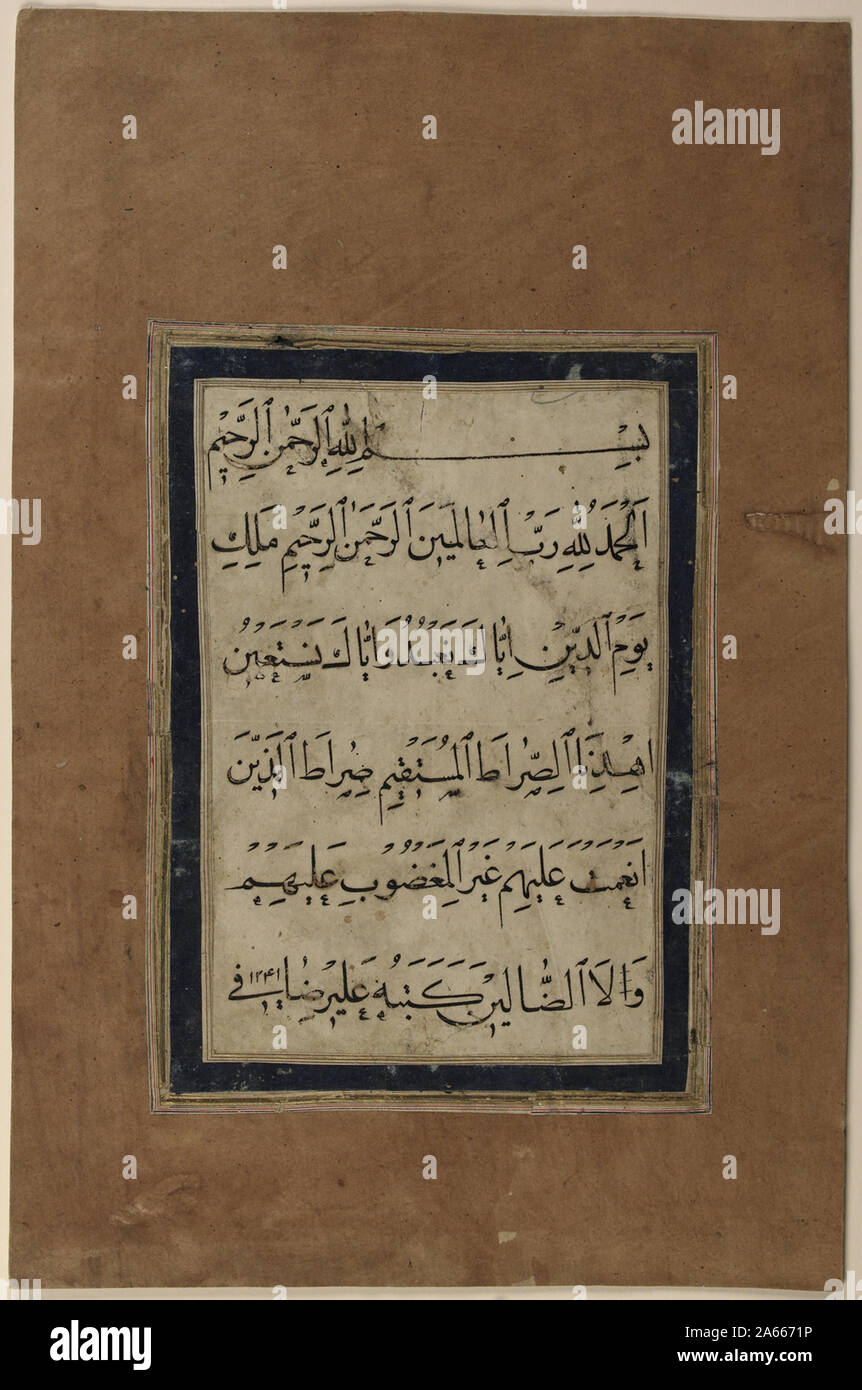 بِسْمِ ٱللّٰهِ ٱلرَّحْمٰنِ ٱلرَّحِيْمِ
اَلْحَمْدُ لِلّٰهِ رَبِّ الْعَالَمِيْنَ اَلرَّحْمٰنِ الرَّحِيْمِ مَلِكِ
يَوْمِ الدِّيْنِ اِيَّاكَ نَعْبُدُ وَاِيَّاكَ نَسْتَعِيْنُ
اهْدِنَا الصِّرَاطَ الْمُسْتَقِيْمَ صِرَاطَ الَّذِيْنَ
اَنْعَمْتَ عَلَيْهِمْ غَيْرِ الْمَغْضُوْبِ عَلَيْهِمْ
وَلَا الضَّالِّيْنَ كَتَبَهُ عَلِيْرِضَا فِي ١٢٤١
alamy
Image ID: 2A6671P
www.alamy.com